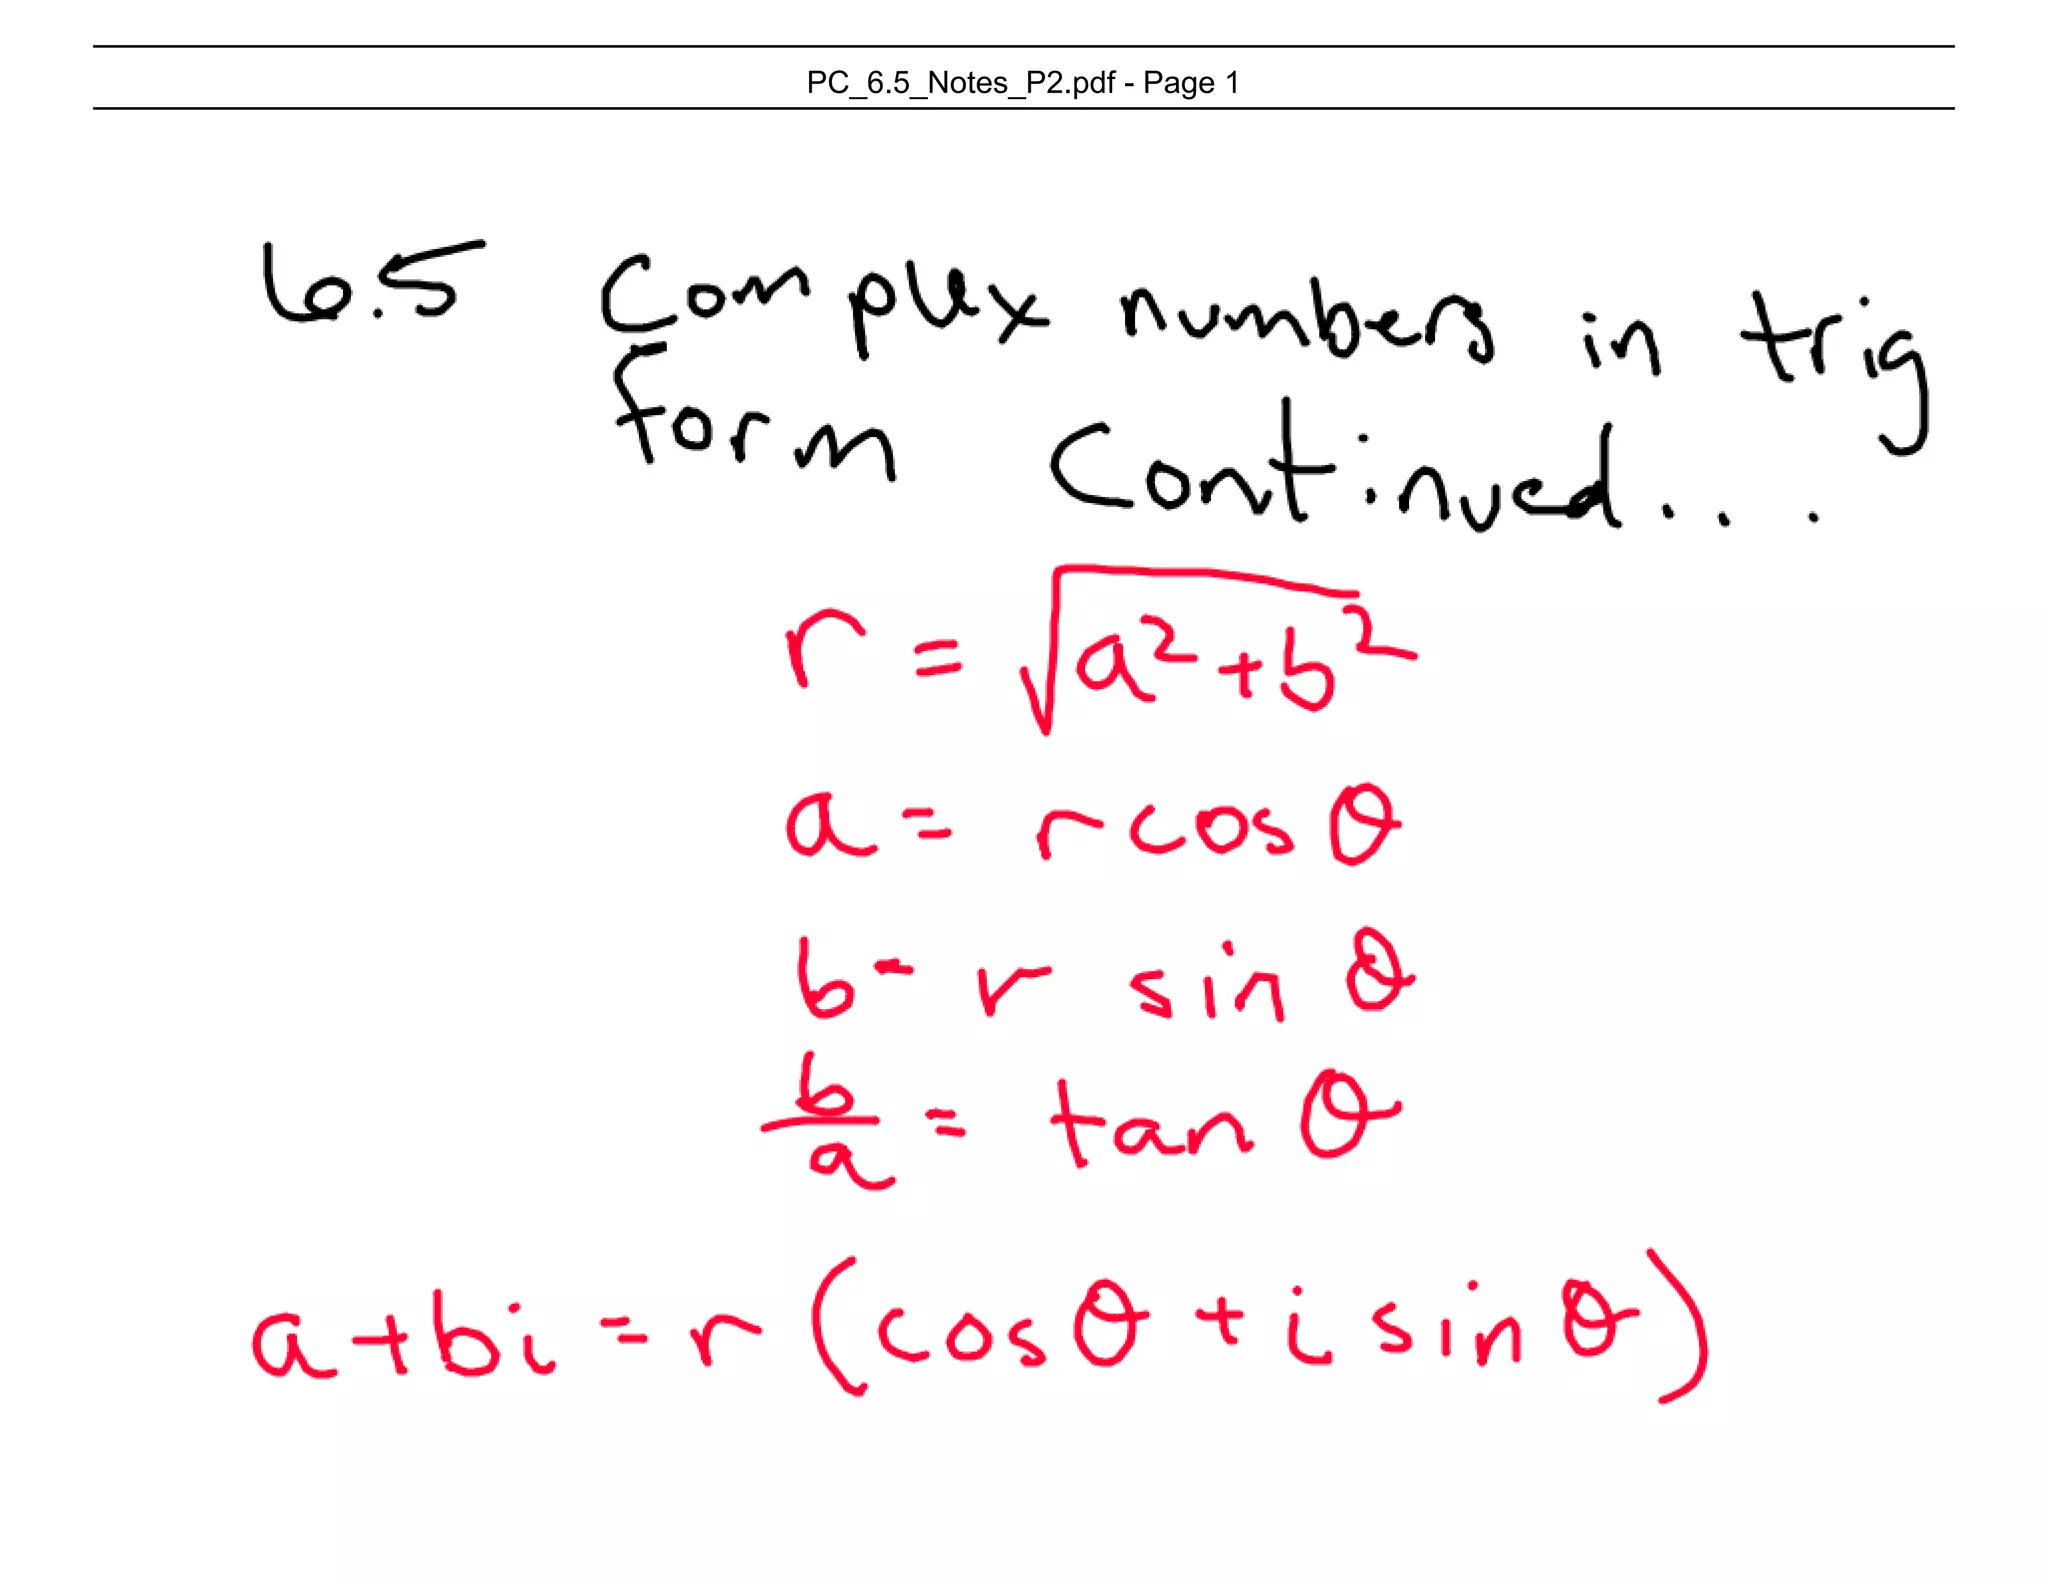 PC_6.5_Notes_P2.pdf - Page 1
6.5 Complex numbers in trig
form Continued...
r = √a²+b²
a = r cos θ
b = r sin θ
b/a = tan θ
a+bi = r (cos θ + i sin θ)